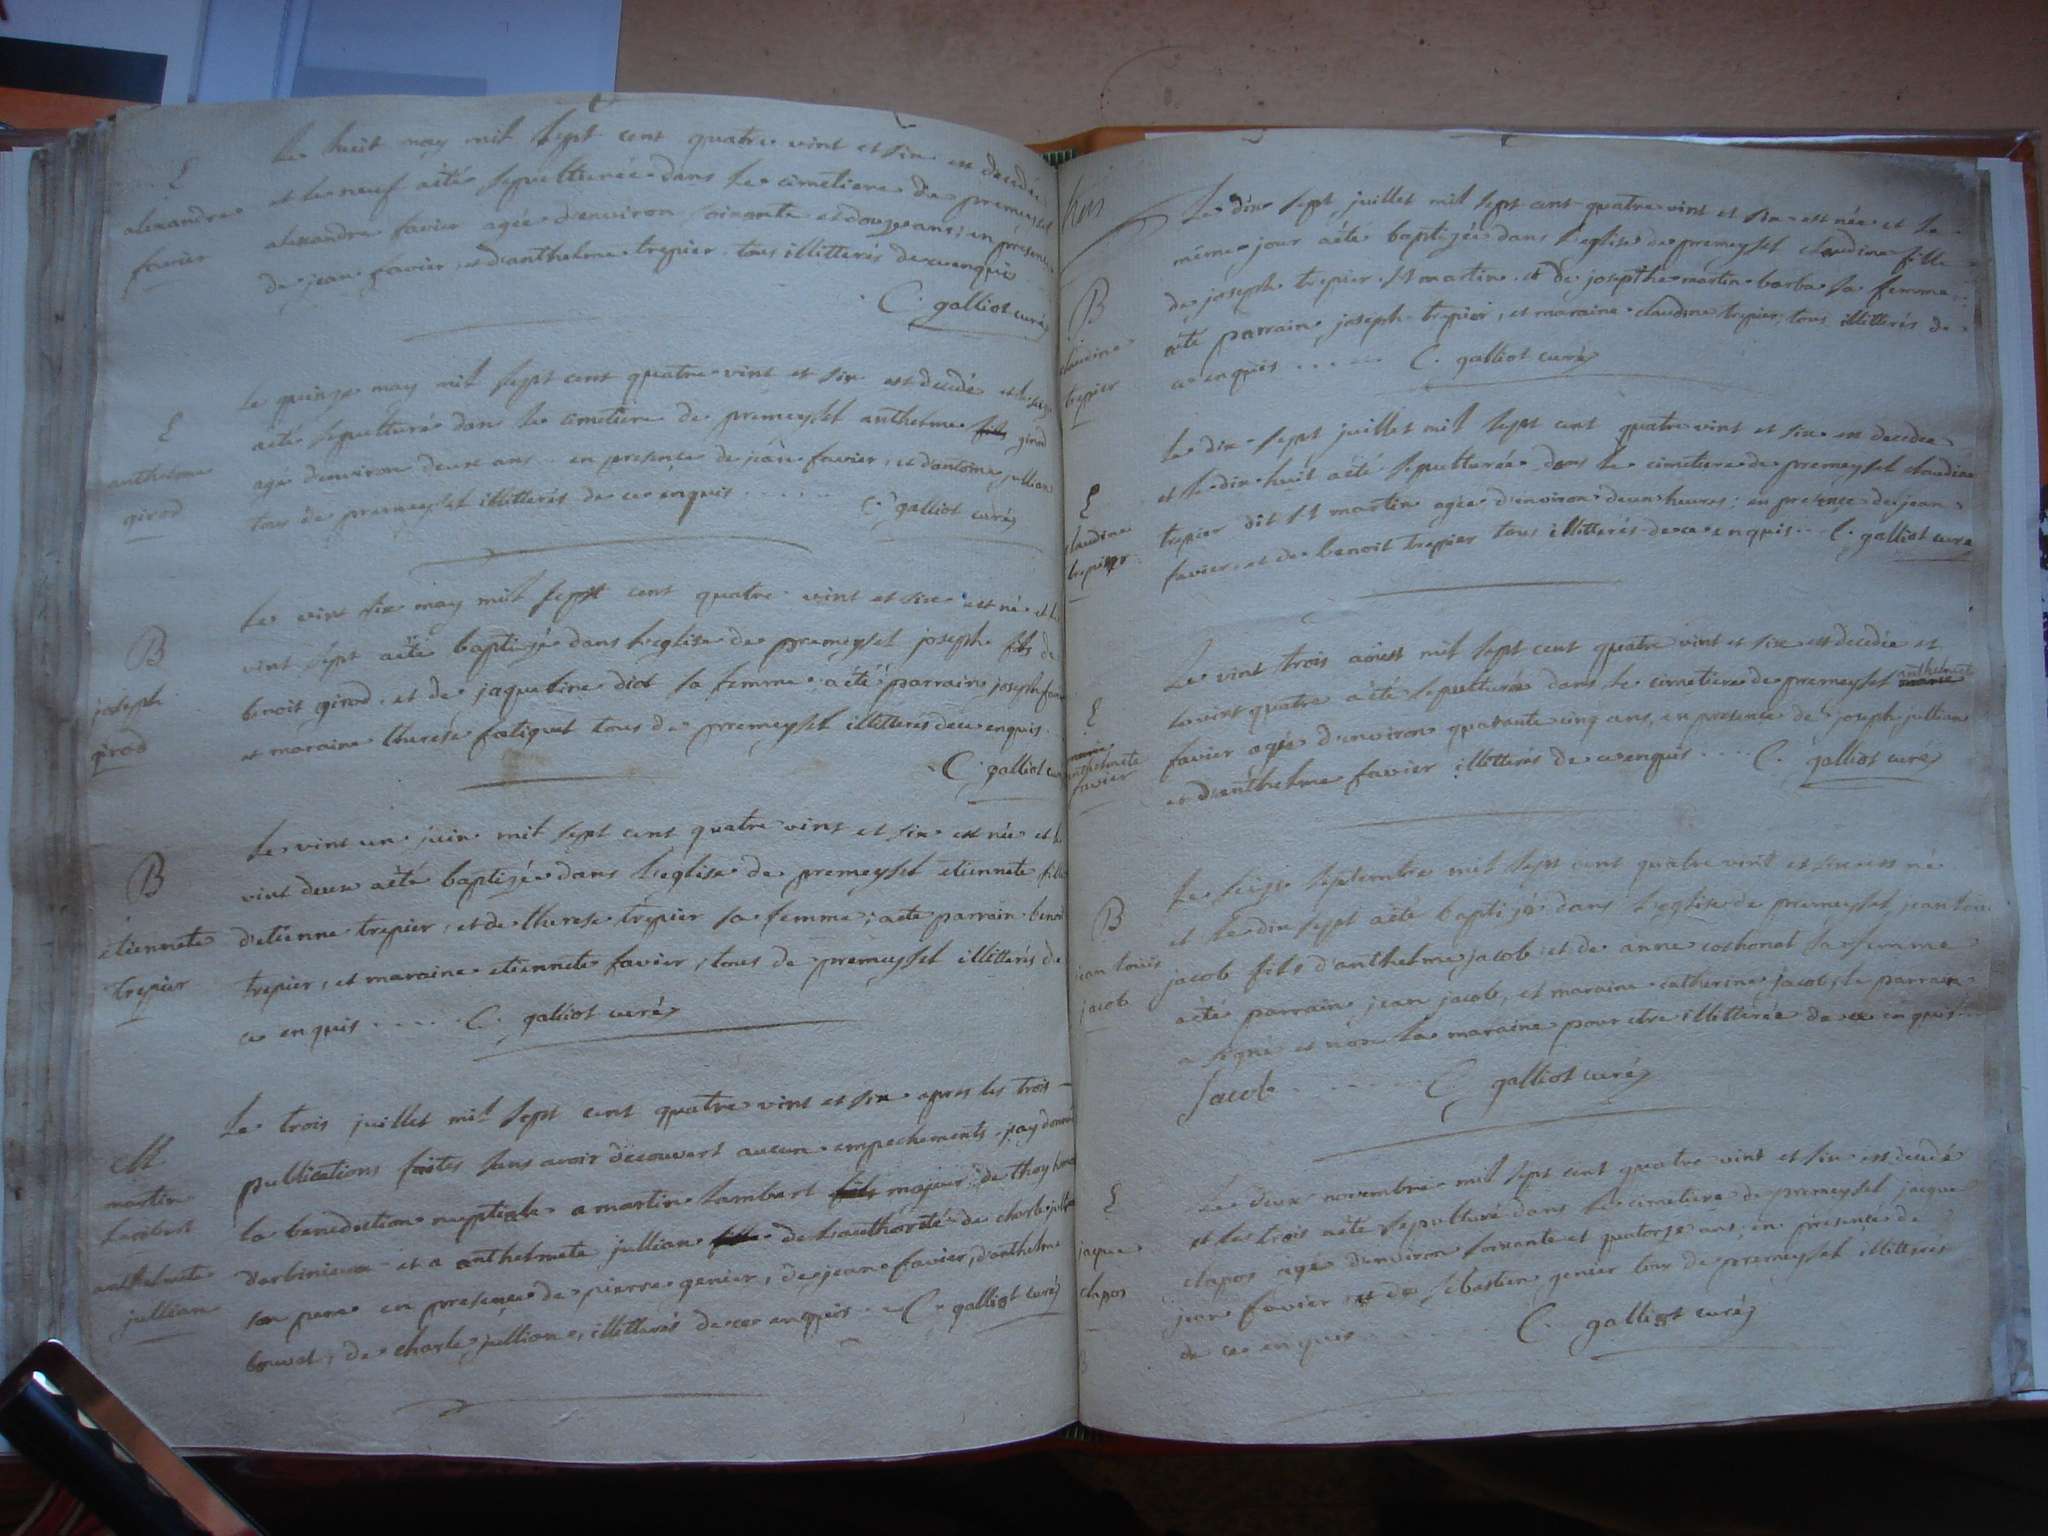 Le huit may mil sept cent quatre vint et six est decedé
et le neuf aété sepulturée dans le cimetiere de premeysel
alexandre favier agée d'environ soixante et douze ans, en presence
de jean favier, et d'anthelme trepier tous illitterés de ce enquis
C. galliot curé
E
alexandre
favier
Le quinze may mil sept cent quatre vint et six est decedé et le seize
aété sepulturé dans le cimetiere de premeysel anthelme fils girod
agé d'environ deux ans en presence de jean favier, et d'antoine jullian
tous de premeysel illitterés de ce enquis ..... C. galliot curé
E
anthelme
girod
Le vint six may mil sept cent quatre vint et six est né et le
vint sept aété baptizé dans l'eglise de premeysel joseph fils de
benoit girod, et de jaqueline diot sa femme aété parrain joseph
et maraine therése fatiguet tous de premeysel illitterés de ce enquis
C. galliot curé
B
joseph
girod
Le vint un juin mil sept cent quatre vint et six est née et le
vint deux aété baptizée dans l'eglise de premeysel etiennete fille
d'etienne trepier, et de therese trépier sa femme, aété parrain benoit
trepier, et maraine etiennete favier, tous de premeysel illitterés de
ce enquis .... C. galliot curé
B
etiennete
trepier
Le trois juillet mil sept cent quatre vint et six apres les trois
publications faites sans avoir découvert aucun empechements jay donné
la benediction nuptiale a martin lambert fils majeur de thoy
d'arbinieux et a anthelmete jullian fille de l'authorité de charle jullian
son pere en presence de pierre genier, de jean favier, d'anthelme
bouvet, de charle jullian, illitterés de ce enquis .. C. galliot curé
M
martin
lambert
anthelmete
jullian
Le dix sept juillet mil sept cent quatre vint et six est née et le
même jour aété baptizée dans l'eglise de premeysel claudine fille
de joseph trepier st martin et de josepthe martin barba sa femme
aété parrain joseph trepier, et maraine claudine trepier, tous illitterés de
ce enquis .... C. galliot curé
B
claudine
trepier
Le dix sept juillet mil sept cent quatre vint et six est decedée
et le dix huit aété sepulturée dans le cimetiere de premeysel claudine
trepier dit st martin agée d'environ deux heures; en presence de jean
favier, et de benoit trepier tous illitterés de ce enquis .. C. galliot curé
E
claudine
trepier
Le vint trois aôust mil sept cent quatre vint et six est decedée et
le vint quatre aété sepulturée dans le cimetiere de premeysel marie anthelmete
favier agée d'environ quarante cinq ans, en presence de joseph jullian
et d'anthelme favier illitterés de ce enquis .... C. galliot curé
E
marie
anthelmete
favier
Le seize septembre mil sept cent quatre vint et six est né
et le dix sept aété baptizé dans l'eglise de premeysel jean louis
jacob fils d'anthelme jacob et de anne cochonat sa femme
aété parrain jean jacob, et maraine catherine jacob, le parrain
a signé et non la maraine pour etre illitterée de ce enquis
Jacob ...... C. galliot curé
B
jean louis
jacob
Le deux novembre mil sept cent quatre vint et six est decedé
et les trois aété sepulturé dans le cimetiere de premeysel jaque
clapos agé d'environ soixante et quatorze ans, en presence de
jean favier et de sebastien genier tous de premeysel illitterés
de ce enquis ...... C. galliot curé
E
jaque
clapos
B